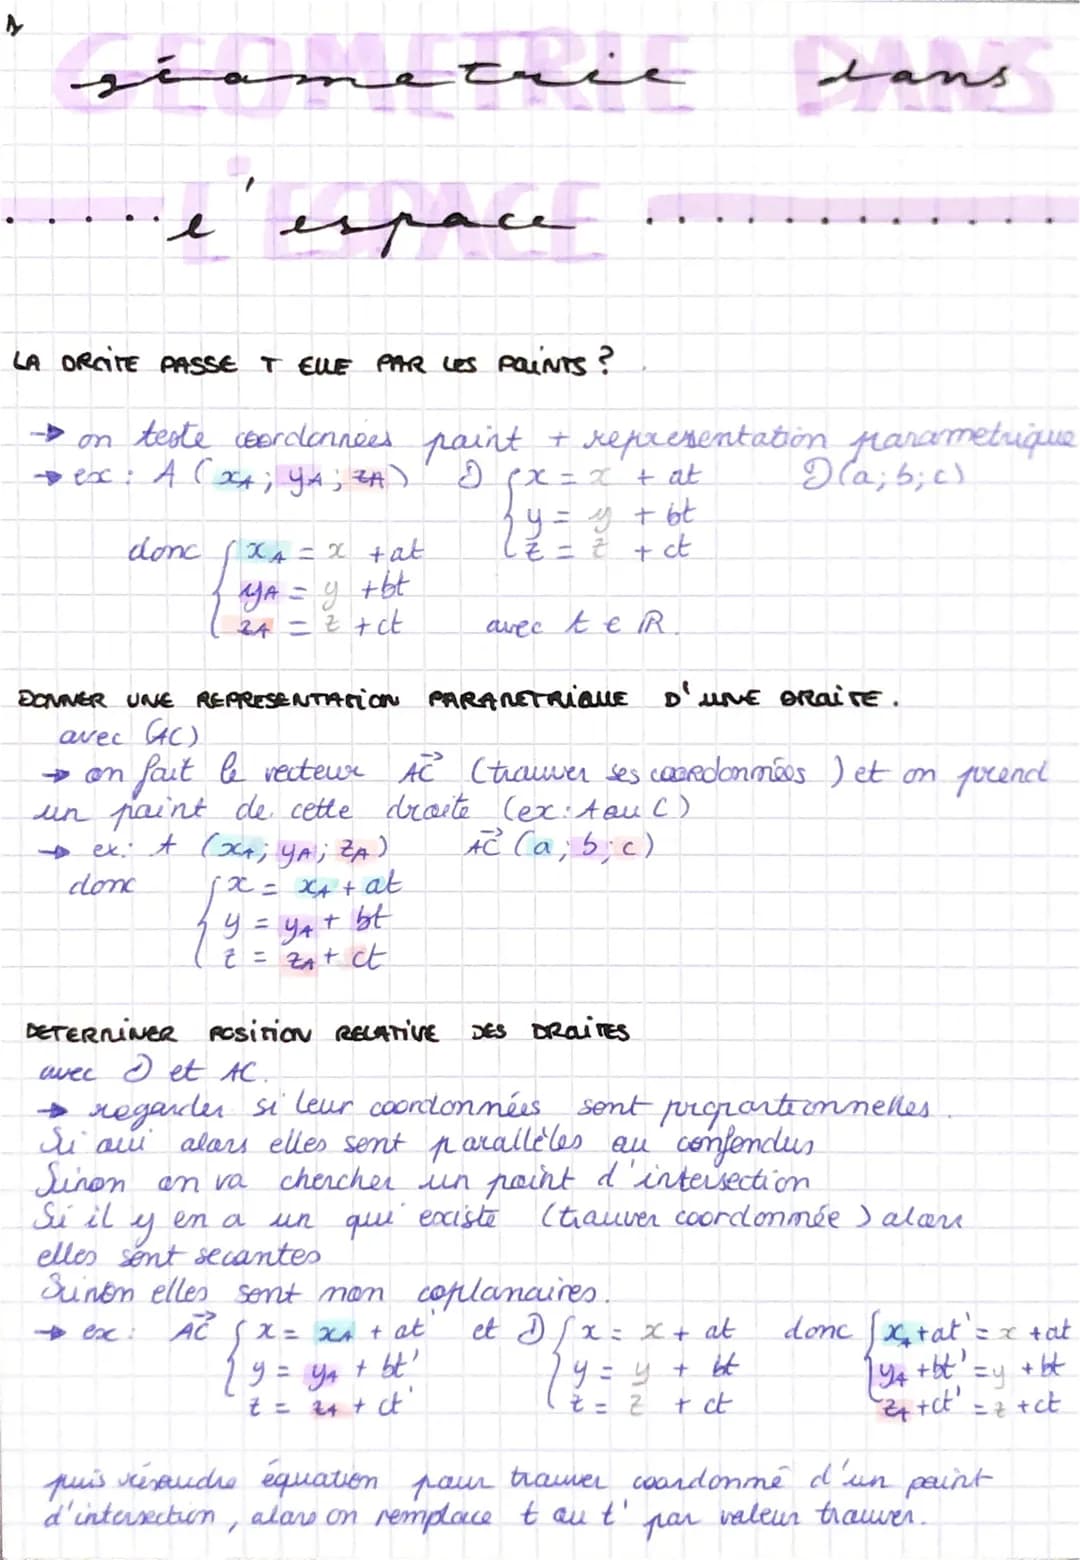 GEOMETRIE DANS
géometrie dans
L'ESPACE
l'espace
LA DROITE PASSE T ELLE PAR LES POINTS ?
→ on teste coordonnées point + représentation parametrique
→ ex : A (xA ; yA ; zA) D { x = x + at D(a; b; c)
y = y + bt
z = z + ct
donc { xA = x + at
yA = y + bt
zA = z + ct avec t ∈ ℝ.
DONNER UNE REPRESENTATION PARAMETRIQUE D'UNE DROITE.
avec (AC)
→ on fait le vecteur AC→ (trouver ses coordonnées) et on prend
un point de cette droite (ex: A ou C)
→ ex: A (xA; yA; zA) AC→ (a ; b ; c)
donc { x = xA + at
y = yA + bt
z = zA + ct
DETERMINER POSITION RELATIVE DES DROITES
avec D et AC.
→ regarder si leur coordonnées sont proportionnelles.
Si oui alors elles sont parallèles ou confondus
Sinon on va chercher un point d'intersection
Si il y en a un qui existe (trouver coordonnée) alors
elles sont secantes
Sinon elles sont non coplanaires.
→ ex: AC→ { x = xA + at' et D { x = x + at donc { xA + at' = x + at
y = yA + bt' y = y + bt yA + bt' = y + bt
z = zA + ct' z = z + ct zA + ct' = z + ct
puis résoudre équation pour trouver coordonné d'un point
d'intersection, alors on remplace t ou t' par valeur trouver.